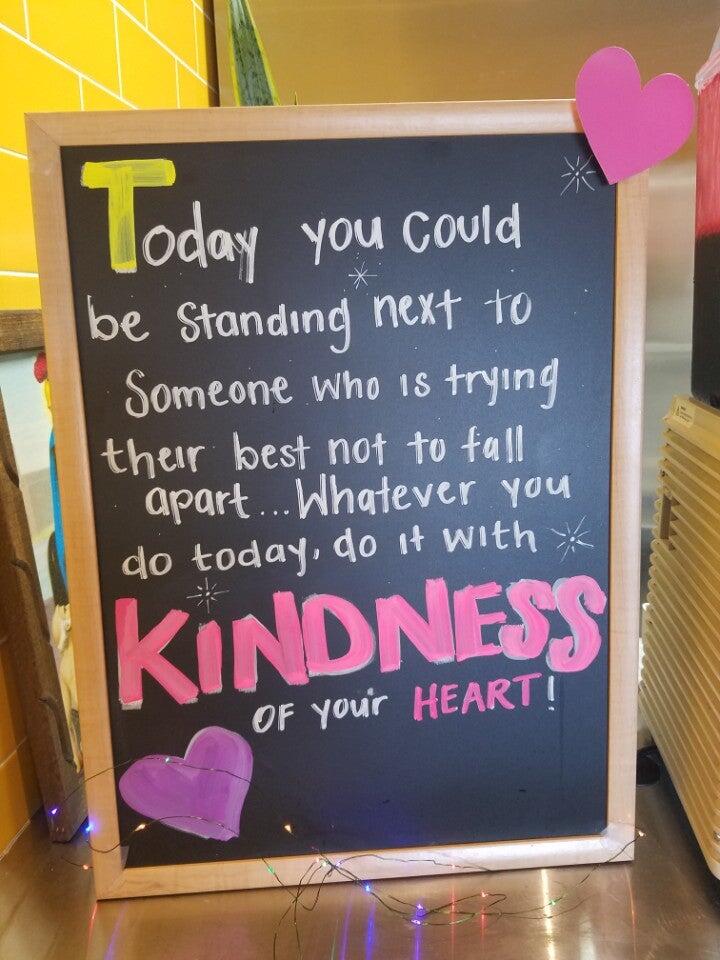 Today you could
be standing next to
Someone who is trying
their best not to fall
apart...Whatever you
do today, do it with
KINDNESS
OF your HEART!